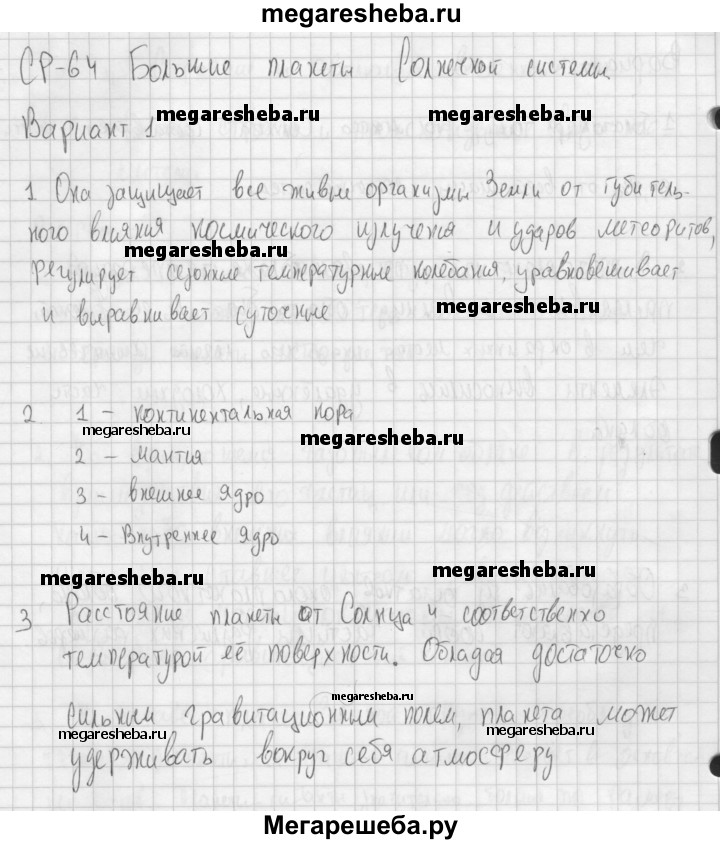 megaresheba.ru
СР-64 Большие планеты Солнечной системы.
megaresheba.ru megaresheba.ru
Вариант 1
1 Она защищает все живые организмы Земли от губитель-
ного влияния космического излучения и ударов метеоритов,
megaresheba.ru
регулирует сезонные температурные колебания, уравновешивает
megaresheba.ru
и выравнивает суточные
2 1 - континентальная кора
megaresheba.ru megaresheba.ru
2 - Мантия
3 - внешнее ядро
4 - Внутреннее ядро
megaresheba.ru megaresheba.ru
3 Расстояние планеты от Солнца и соответственно
температурой её поверхности. Обладая достаточно
megaresheba.ru
сильным гравитационным полем, планета может
megaresheba.ru megaresheba.ru
удерживать вокруг себя атмосферу
Мегарешеба.ру